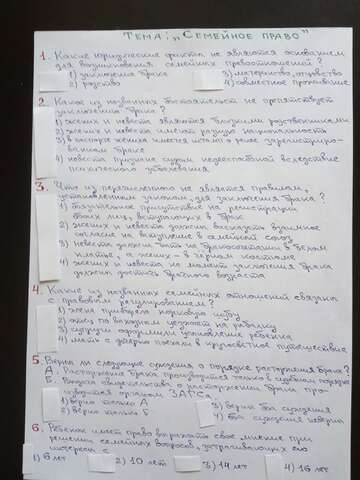 Тема: „Семейное право"
1. Какие юридические факты не являются основанием
для возникновения семейных правоотношений?
1) заключение брака
3) материнство, отцовство
2) родство
4) совместное проживание
2. Какое из названных обстоятельств не препятствует
заключению брака?
1) жених и невеста являются близкими родственниками
2) жених и невеста имеют разную национальность
3) в паспорте жениха имеется штамп о ранее зарегистриро-
ванном браке
4) невеста признана судом недееспособной вследствие
психического заболевания
3. Что из перечисленного не является правилом,
установленным законом, для заключения брака?
1) обязательное присутствие на регистрации
обоих лиц, вступающих в брак
2) жених и невеста должны высказать взаимное
согласие на вступление в семейный союз
3) невеста должна быть на бракосочетании в белом
платье, а жених - в черном костюме
4) жених и невеста на момент заключения брака
должны достичь брачного возраста
4. Какие из названных семейных отношений связаны
с правовым регулированием?
1) жена приобрела норковую шубу
2) отец по выходным уезжает на рыбалку
3) супруги оформили усыновление ребенка
4) мать с дочерью поехали в кругосветное путешествие
5. Верны ли следующие суждения о порядке расторжения брака?
А. Расторжение брака производится только в судебном порядке
Б. Выдача свидетельства о расторжении брака прои-
зводится органом ЗАГСа.
1) верно только А
3) верны оба суждения
2) верно только Б
4) оба суждения неверны
6. Ребенок имеет право выражать свое мнение при
решении семейных вопросов, затрагивающих его
интересы с
1) 6 лет 2) 10 лет 3) 14 лет 4) 16 лет